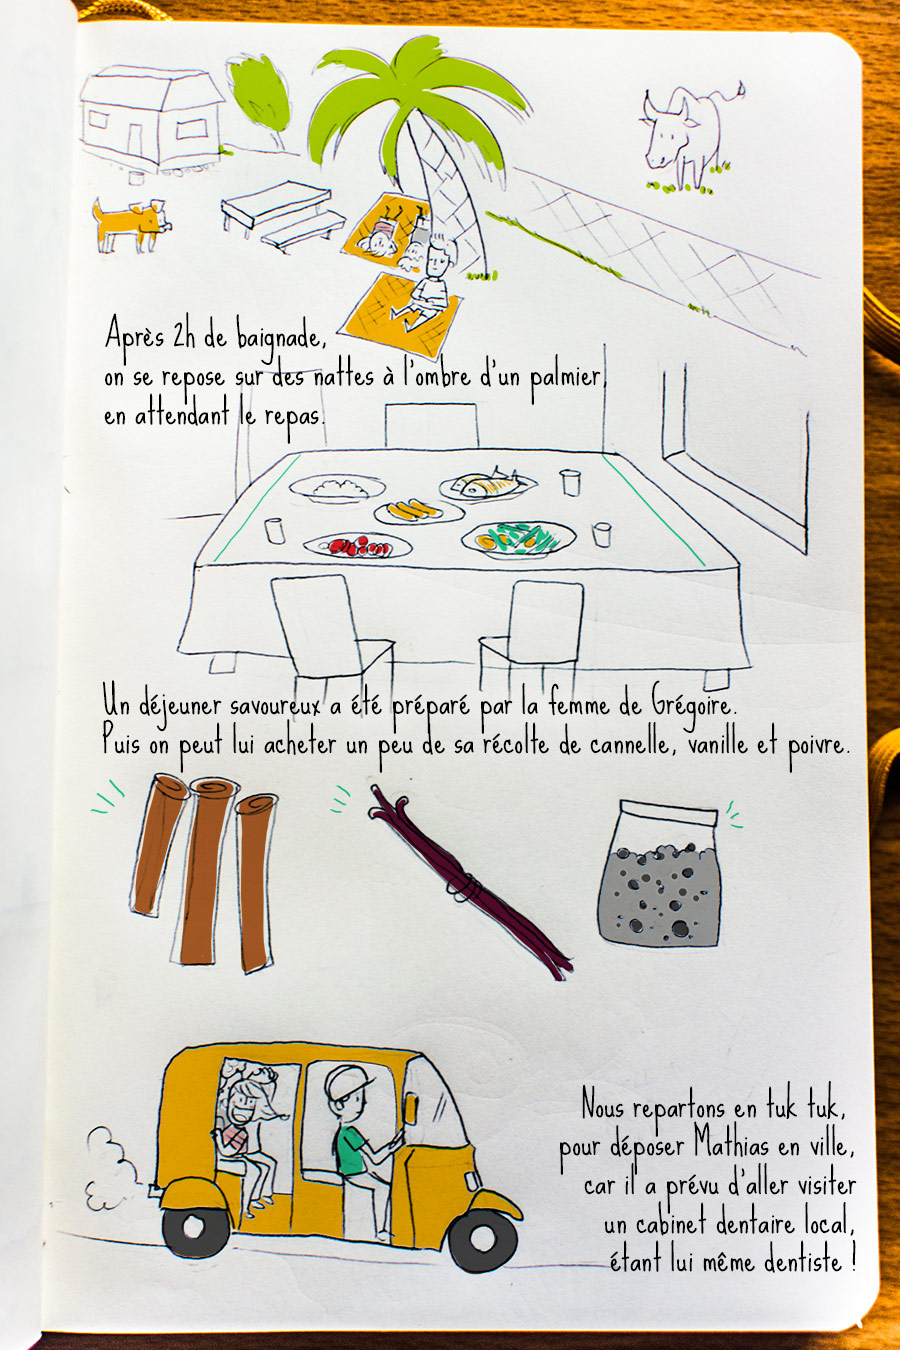 Après 2h de baignade,
on se repose sur des nattes à l'ombre d'un palmier,
en attendant le repas.
Un déjeuner savoureux a été préparé par la femme de Grégoire.
Puis on peut lui acheter un peu de sa récolte de cannelle, vanille et poivre.
Nous repartons en tuk tuk,
pour déposer Mathias en ville,
car il a prévu d'aller visiter
un cabinet dentaire local,
étant lui même dentiste !